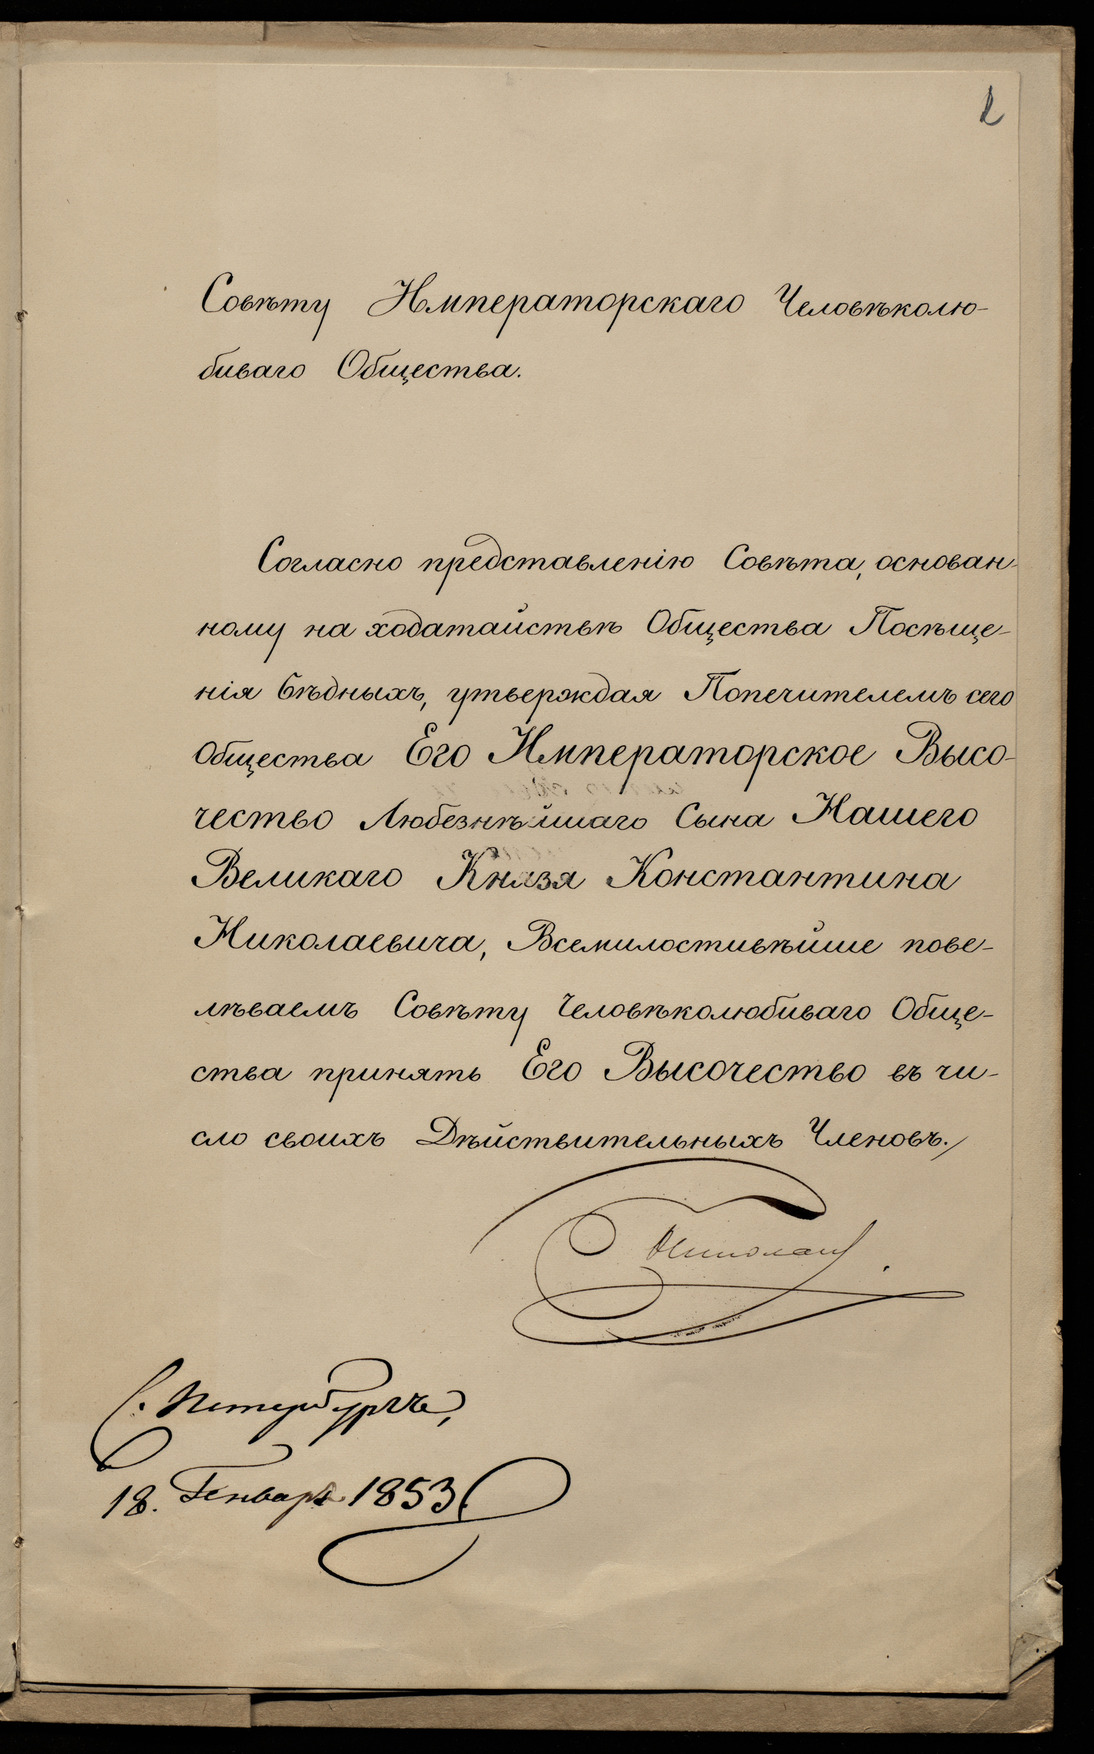 2
Совѣту Императорскаго Человѣколю-
биваго Общества.
Согласно представленію Совѣта, основан-
ному на ходатайствѣ Общества Посѣще-
нія бѣдныхъ, утверждая Попечителемъ сего
Общества Его Императорское Высо-
чество Любезнѣйшаго Сына Нашего
Великаго Князя Константина
Николаевича, Всемилостивѣйше пове-
лѣваемъ Совѣту Человѣколюбиваго Обще-
ства принять Его Высочество въ чи-
сло своихъ Дѣйствительныхъ Членовъ.
Николай
С. Петербургъ,
18. Генваря 1853.